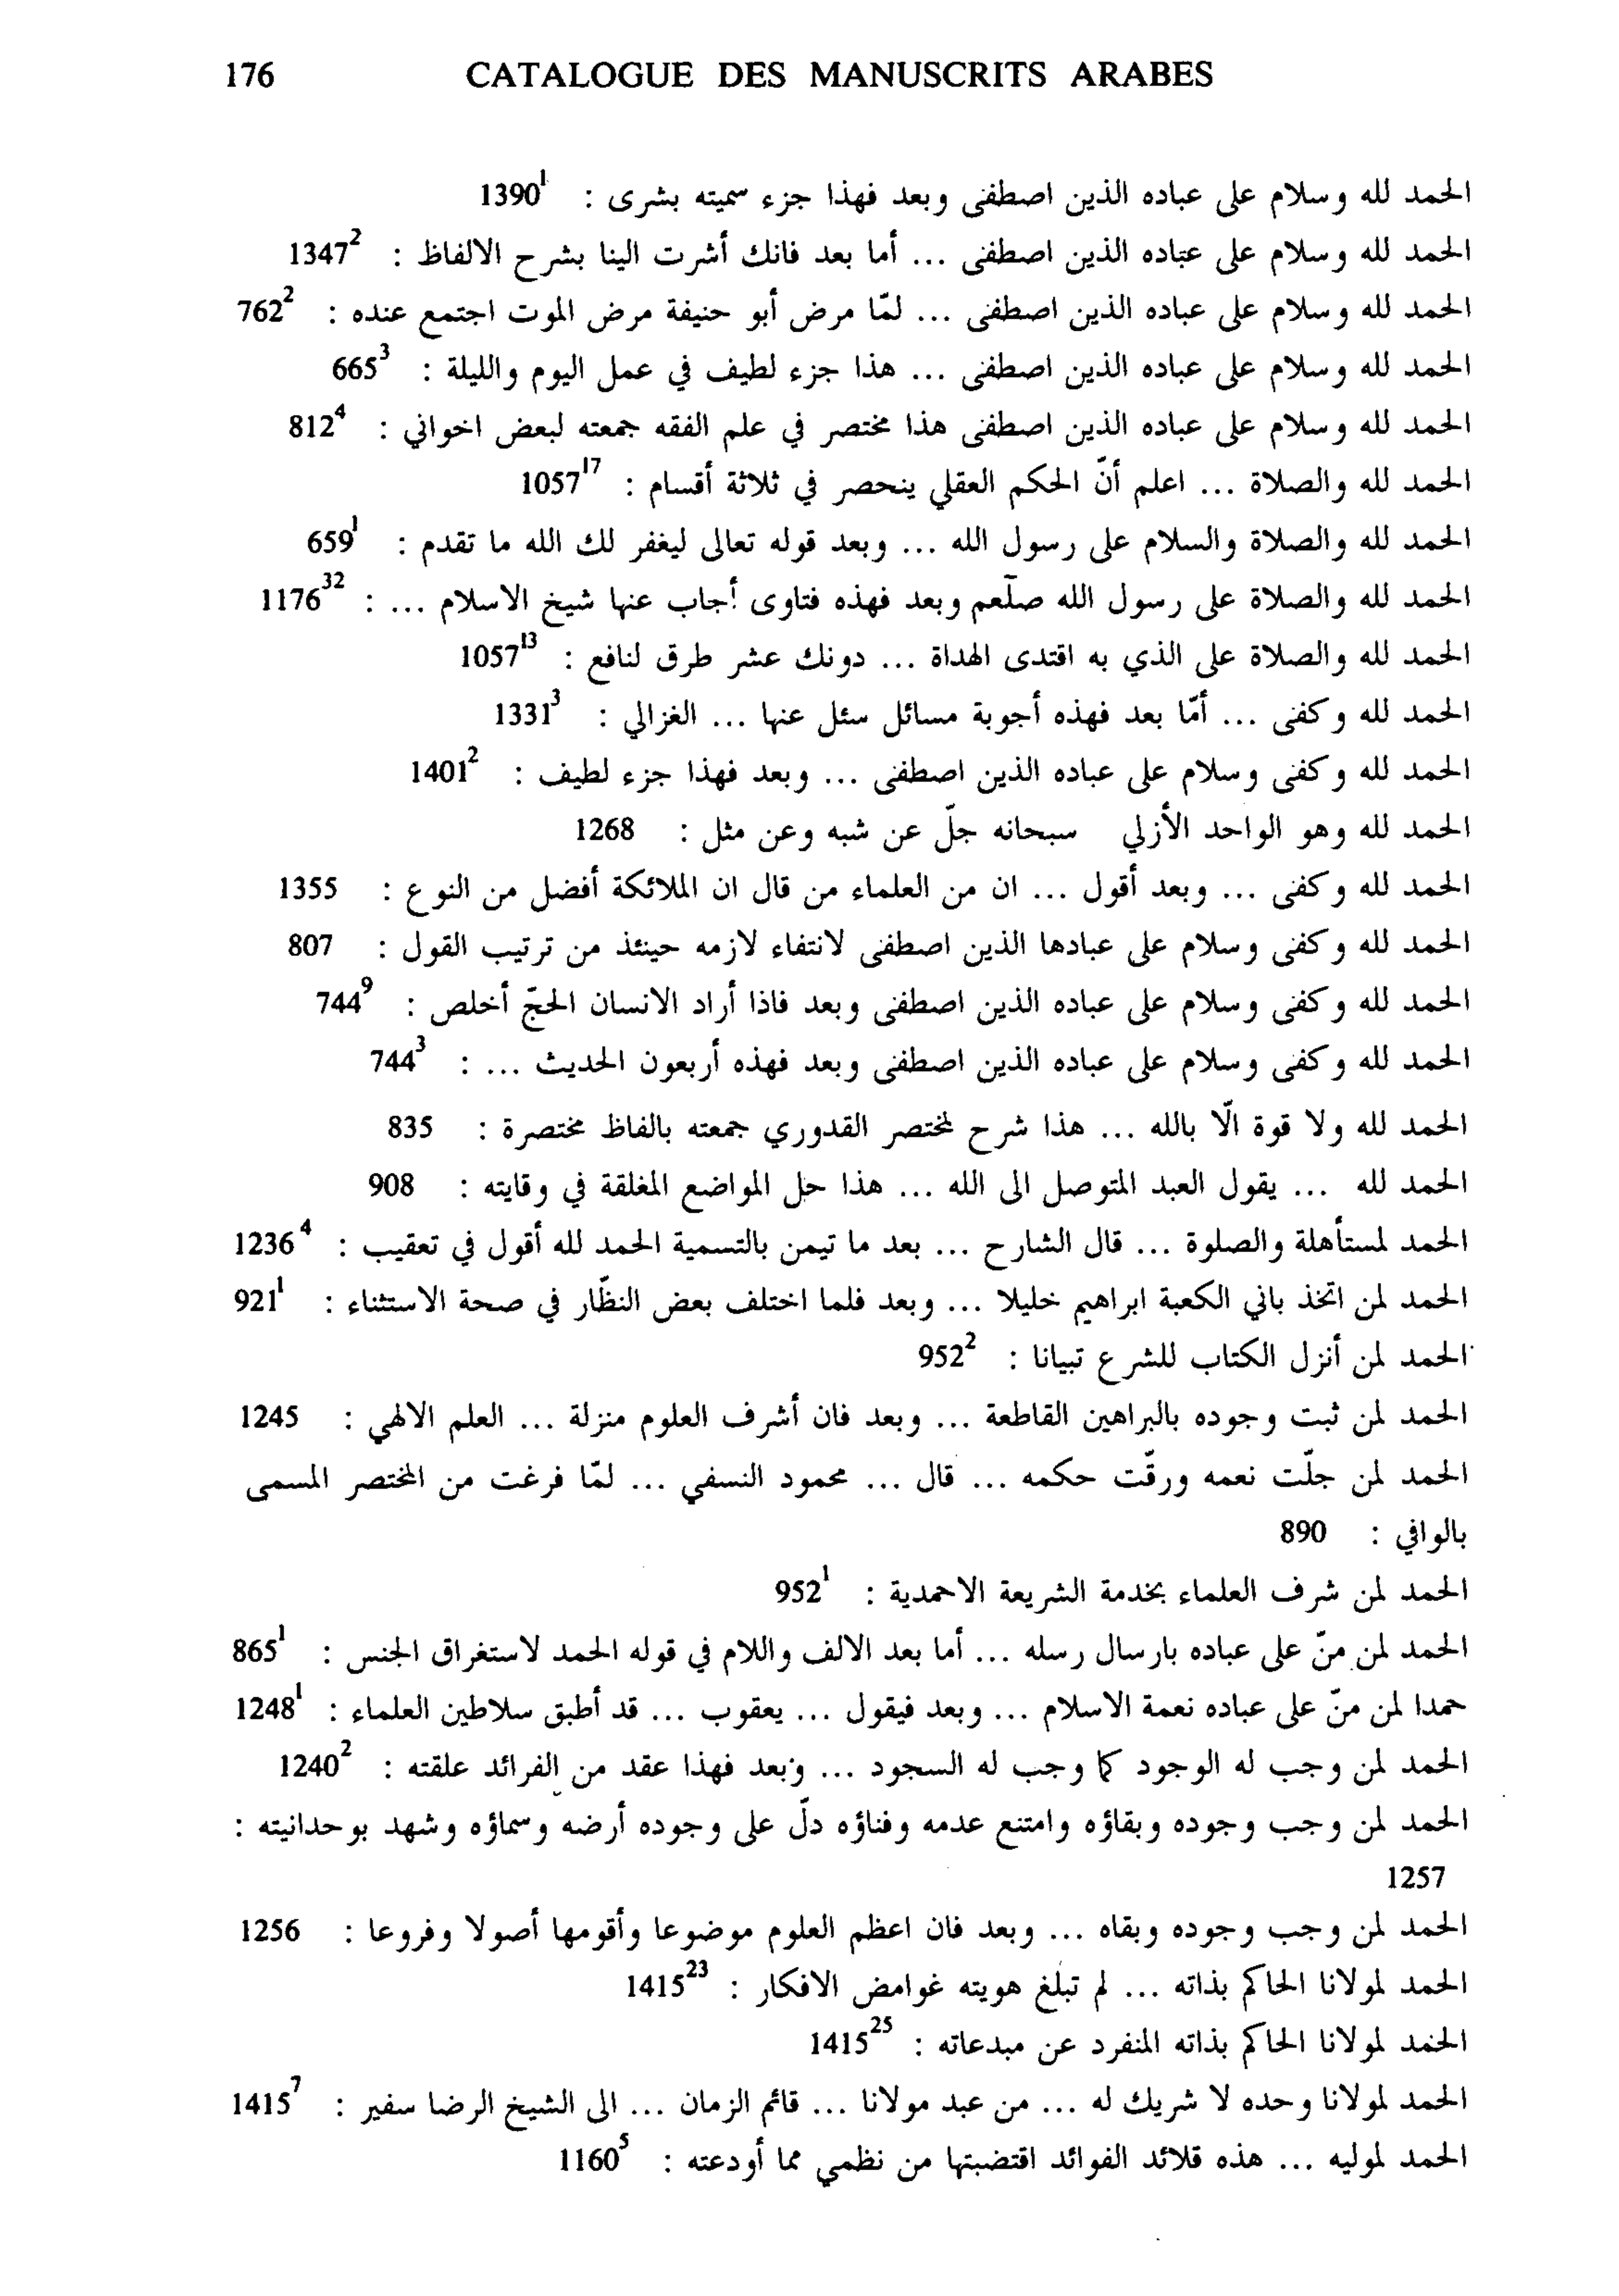 176 CATALOGUE DES MANUSCRITS ARABES
الحمد لله وسلام على عباده الذين اصطفى وبعد فهذا جزء سميته بشرى : 1390¹
الحمد لله وسلام على عباده الذين اصطفى ... أما بعد فانك أشرت الينا بشرح الالفاظ : 1347²
الحمد لله وسلام على عباده الذين اصطفى ... لمّا مرض أبو حنيفة مرض الموت اجتمع عنده : 762²
الحمد لله وسلام على عباده الذين اصطفى ... هذا جزء لطيف في عمل اليوم والليلة : 665³
الحمد لله وسلام على عباده الذين اصطفى هذا مختصر في علم الفقه جمعته لبعض اخواني : 812⁴
الحمد لله والصلاة ... اعلم أنّ الحكم العقلي ينحصر في ثلاثة أقسام : 1057¹⁷
الحمد لله والصلاة والسلام على رسول الله ... وبعد قوله تعالى ليغفر لك الله ما تقدم : 659¹
الحمد لله والصلاة على رسول الله صلّعم وبعد فهذه فتاوى أجاب عنها شيخ الاسلام ... : 1176³²
الحمد لله والصلاة على الذي به اقتدى الهداة ... دونك عشر طرق لنافع : 1057¹³
الحمد لله وكفى ... أمّا بعد فهذه أجوبة مسائل سئل عنها ... الغزالي : 1331³
الحمد لله وكفى وسلام على عباده الذين اصطفى ... وبعد فهذا جزء لطيف : 1401²
الحمد لله وهو الواحد الأزلي سبحانه جلّ عن شبه وعن مثل : 1268
الحمد لله وكفى ... وبعد أقول ... ان من العلماء من قال ان الملائكة أفضل من النوع : 1355
الحمد لله وكفى وسلام على عبادها الذين اصطفى لانتفاء لازمه حينئذ من ترتيب القول : 807
الحمد لله وكفى وسلام على عباده الذين اصطفى وبعد فاذا أراد الانسان الحجّ أخلص : 744⁹
الحمد لله وكفى وسلام على عباده الذين اصطفى وبعد فهذه أربعون الحديث ... : 744³
الحمد لله ولا قوة الّا بالله ... هذا شرح لمختصر القدوري جمعته بالفاظ مختصرة : 835
الحمد لله ... يقول العبد المتوصل الى الله ... هذا حل المواضع المغلقة في وقايته : 908
الحمد لمستأهلة والصلوة ... قال الشارح ... بعد ما تيمن بالتسمية الحمد لله أقول في تعقيب : 1236⁴
الحمد لمن اتخذ باني الكعبة ابراهيم خليلا ... وبعد فلما اختلف بعض النظّار في صحة الاستثناء : 921¹
الحمد لمن أنزل الكتاب للشرع تبيانا : 952²
الحمد لمن ثبت وجوده بالبراهين القاطعة ... وبعد فان أشرف العلوم منزلة ... العلم الالهي : 1245
الحمد لمن جلّت نعمه ورقّت حكمه ... قال ... محمود النسفي ... لمّا فرغت من المختصر المسمى
بالوافي : 890
الحمد لمن شرف العلماء بخدمة الشريعة الاحمدية : 952¹
الحمد لمن منّ على عباده بارسال رسله ... أما بعد الالف واللام في قوله الحمد لاستغراق الجنس : 865¹
حمدا لمن منّ على عباده نعمة الاسلام ... وبعد فيقول ... يعقوب ... قد أطبق سلاطين العلماء : 1248¹
الحمد لمن وجب له الوجود كما وجب له السجود ... وبعد فهذا عقد من الفرائد علقته : 1240²
الحمد لمن وجب وجوده وبقاؤه وامتنع عدمه وفناؤه دلّ على وجوده أرضه وسماؤه وشهد بوحدانيته :
1257
الحمد لمن وجب وجوده وبقاه ... وبعد فان اعظم العلوم موضوعا وأقومها أصولا وفروعا : 1256
الحمد لمولانا الحاكم بذاته ... لم تبلغ هويته غوامض الافكار : 1415²³
الحمد لمولانا الحاكم بذاته المنفرد عن مبدعاته : 1415²⁵
الحمد لمولانا وحده لا شريك له ... من عبد مولانا ... قائم الزمان ... الى الشيخ الرضا سفير : 1415⁷
الحمد لموليه ... هذه قلائد الفوائد اقتضبتها من نظمي مما أودعته : 1160⁵